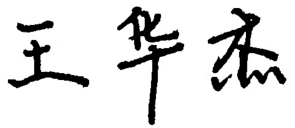 王华杰